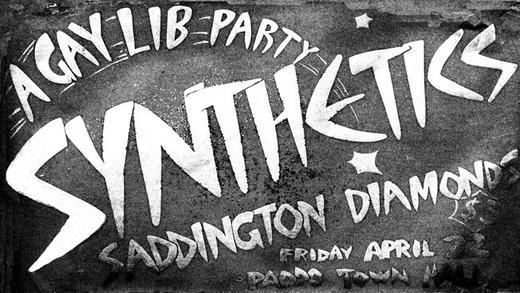 A GAY LIB PARTY
SYNTHETICS
SADDINGTON DIAMONDS
FRIDAY APRIL
PADDO TOWN HALL